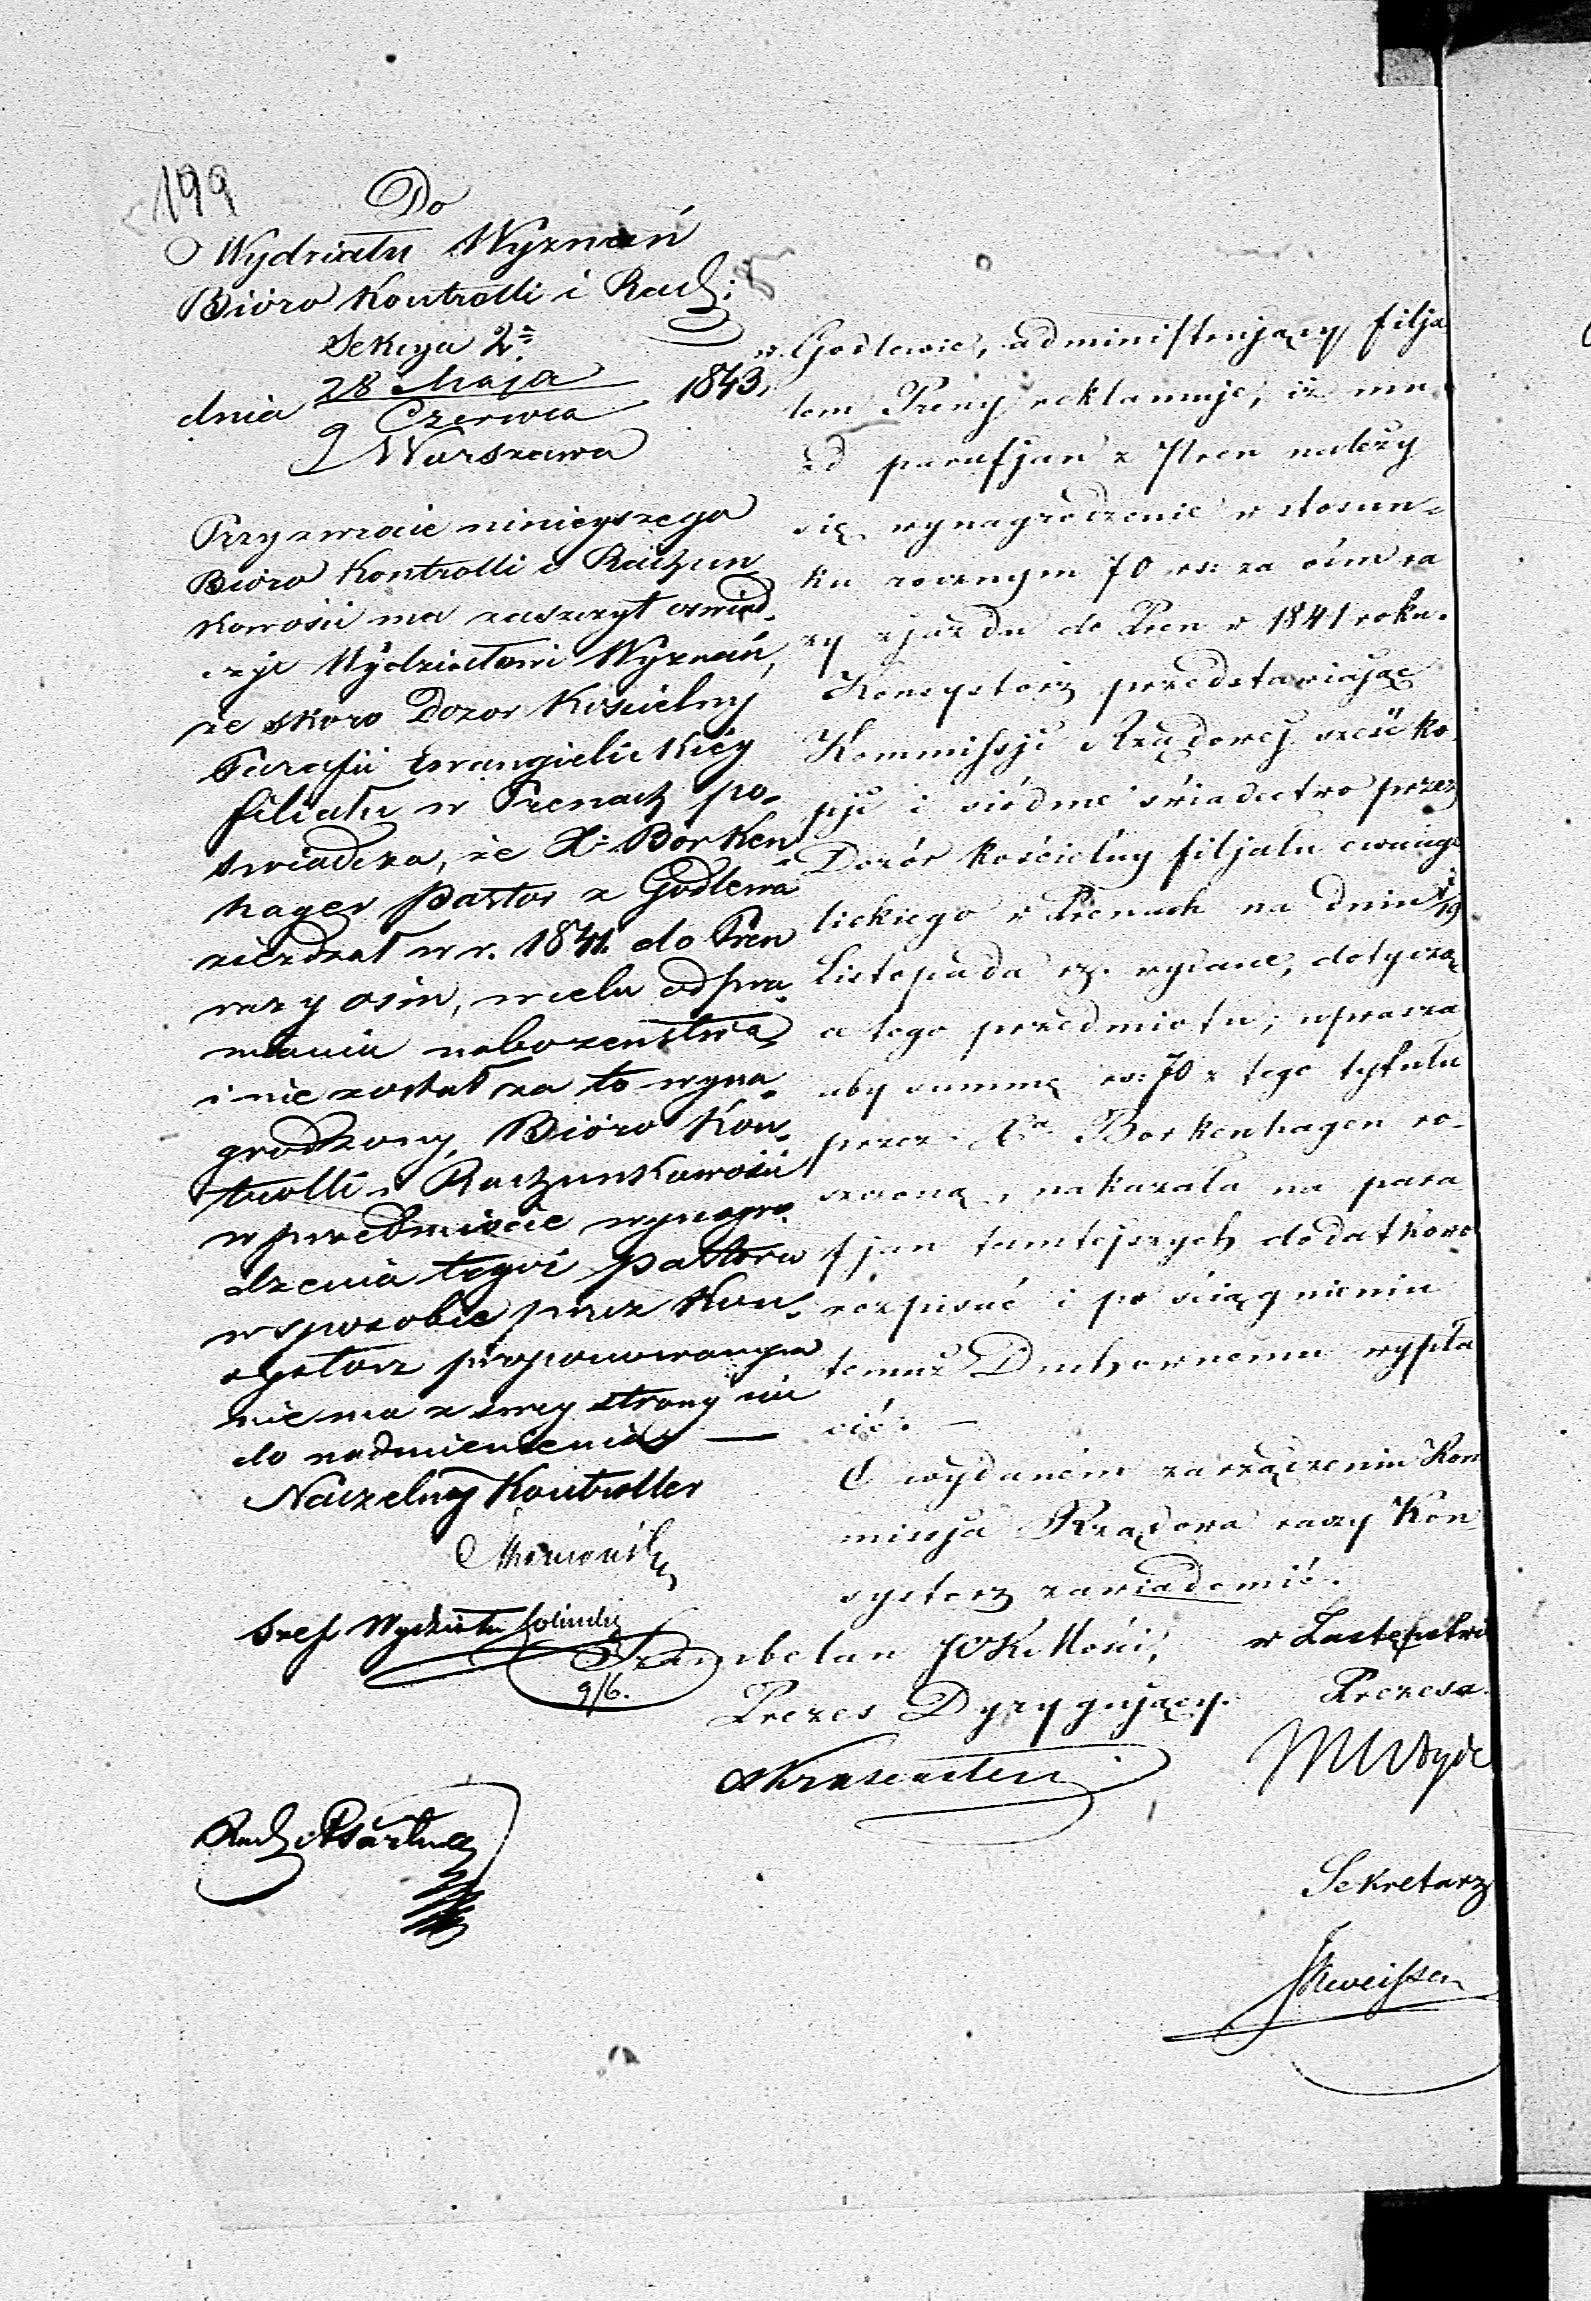 199
Do
Wydziału Wyznań
Bióro Kontrolli i Rach:
Sekcya 2ª
dnia 28 Maja / 9 Czerwca 1843.
Warszawa
Przy zwrocie ninieyszego
Bióro Kontrolli i Rachun
kowości ma zaszczyt oświad-
czyć Wydziałowi Wyznań,
że skoro Dozor Kościelny
Parafii Ewangielickiéy
filiału w Prenach po-
świadcza, że X. Borken
hagen Pastor z Godlewa
zieżdżał w r. 1841. do Pren
razy osim, w celu odpra-
wiania nabożeństwa
i nie został za to wyna-
grodzony, Bióro Kon-
trolli i Rachunkowości
w przedmiocie wynagro-
dzenia tegoż Pastora
w sposobie przez Kon-
systorz proponowanym
nie ma z swey strony nic
do nadmienienia —
Naczelny Kontroller
Szef Wydziału
9/6.
w Godlewie, administrujący filja
łem Preny reklamuje, iż mu
od parafjan z Pren należy
się wynagrodzenie w stosun-
ku rocznym 70 rs: za ośm ra
zy zjazdu do Pren w 1841 roku.
Konsystorz przedstawiając
Kommissyi Rządowej sześć ko-
pji i siódme świadectwo przez
Dozór kościelny filjału ewange
lickiego w Prenach na dniu 7/19
Listopada rz. wydane, dotyczą
ce tego przedmiotu, uprasza
aby summę rs: 70 z tego tytułu
przez Xa Borkenhagen ro-
szczoną, nakazała na para
fjan tamtejszych dodatkowo
rozpisać i po ściągnieniu
temuż Duchownemu wypła
cić. —
O wydanem zarządzeniu Kom
missja Rządowa raczy Kon
systorz zawiadomić.
Szambelan JCK Mości,
Prezes Dyrygujący.
w Zastępstwie
Prezesa.
Sekretarz